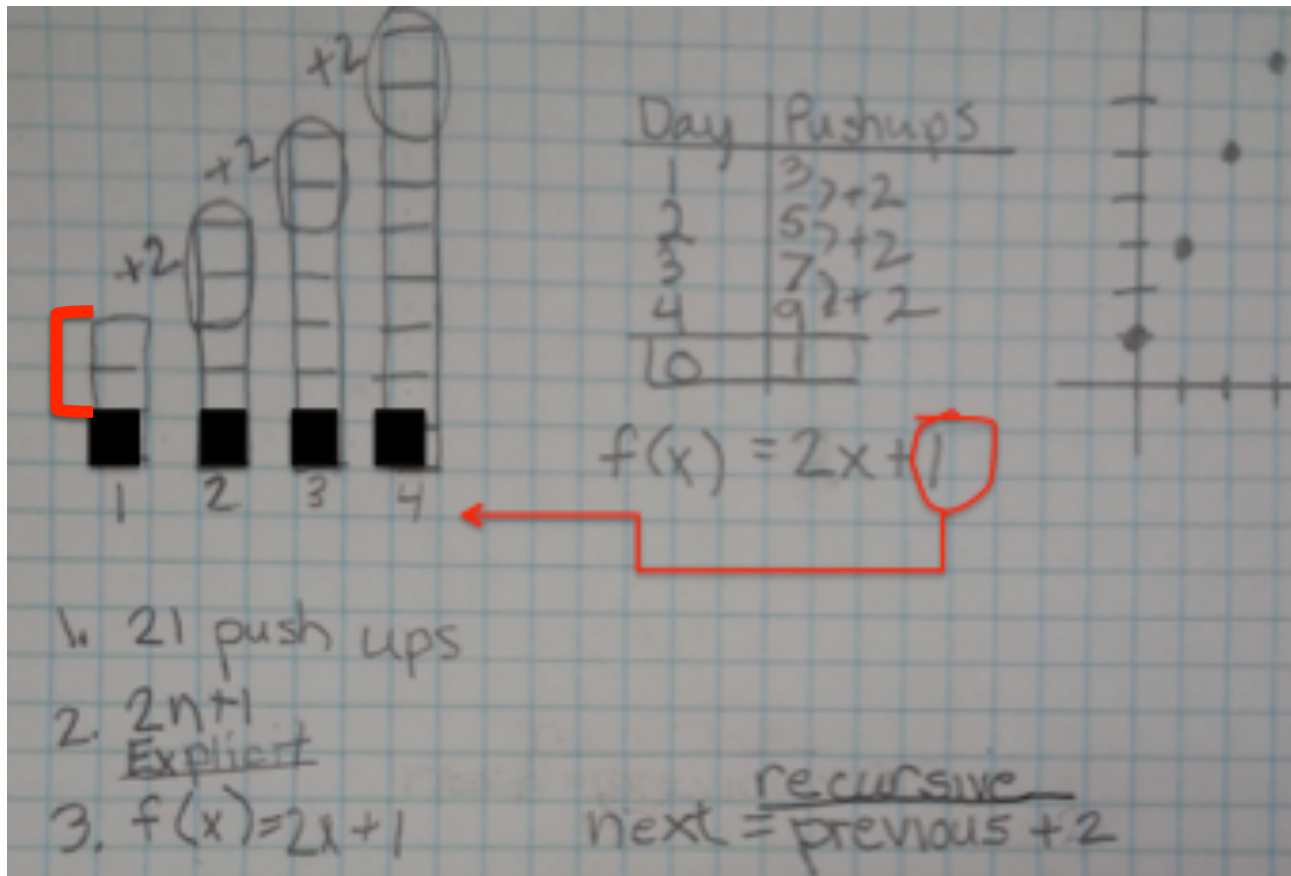 +2
+2
+2
1 2 3 4
Day Pushups
1 3 >+2
2 5 >+2
3 7 >+2
4 9
0 1
f(x) = 2x+1
1. 21 push ups
2. 2n+1
Explicit
3. f(x)=2x+1
recursive
next = previous +2